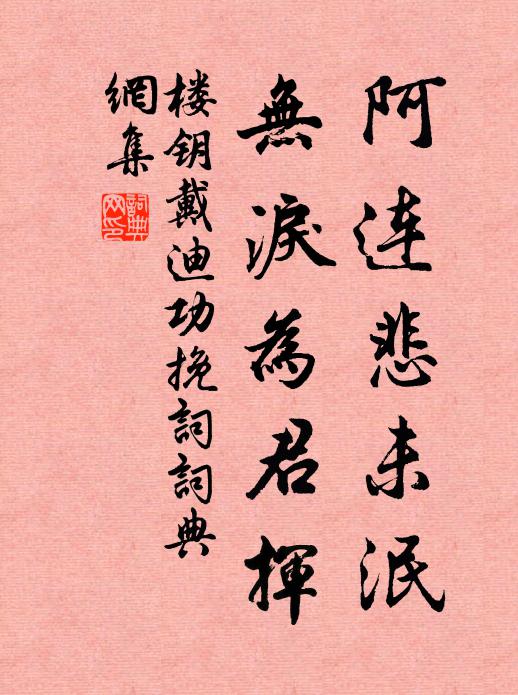 阿連悲未泯
無淚為君揮
楼钥戴迪功挽詞詞典
網集
詞典
网印